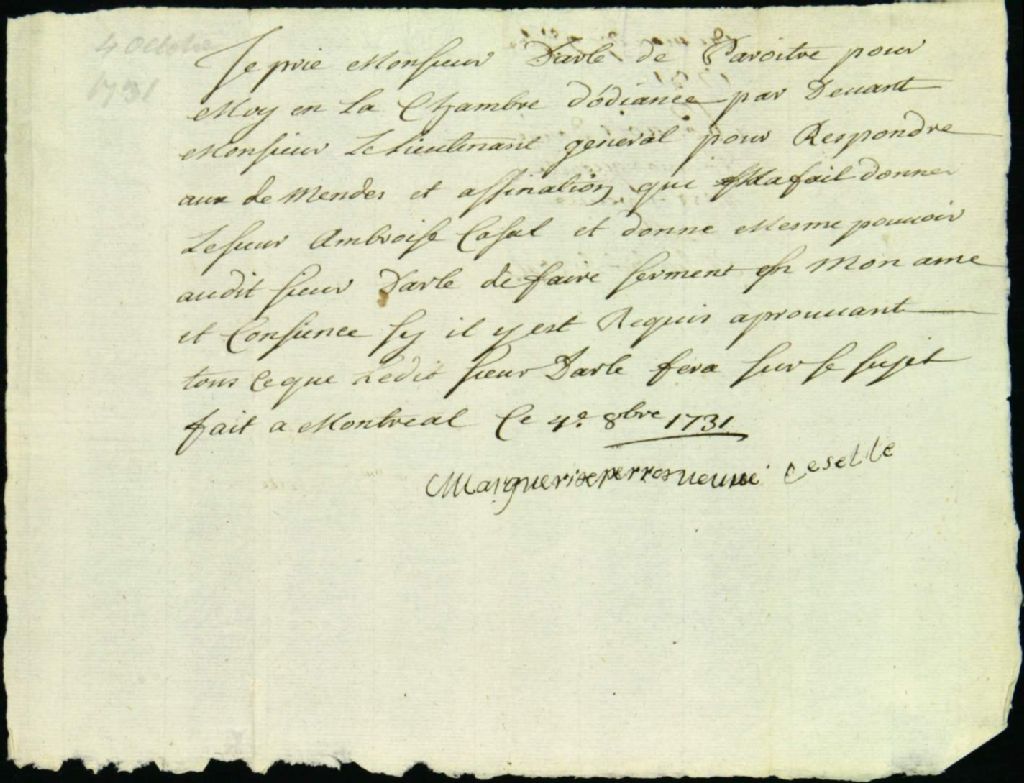 4 Octobre
1731
Je prie Monsieur Darle de Paroitre pour
Moy en La Chambre d'odiance par Devant
Monsieur Le Lieutenant general pour Respondre
aux de Mendes et assination que Ma fait donner
Le sieur Ambroise Casal et donne Mesme pouvoir
audit sieur Darle de faire serment En Mon ame
et Consience sy il y est Requis aprouvant
tous ce que Ledit sieur Darle fera sur se sujet
fait a Montreal Ce 4e 8bre 1731
Marguerite veuve